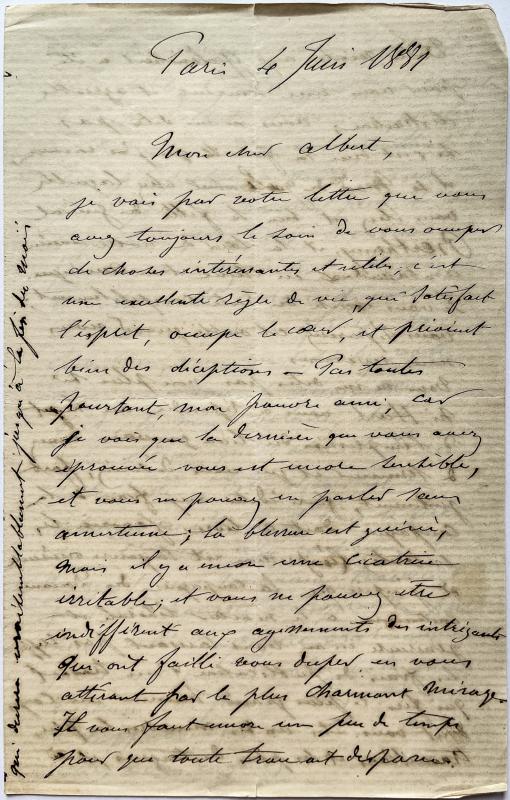 Paris 4 Juin 1881
Mon cher Albert,
je vois par votre lettre que vous
avez toujours le soin de vous occuper
de choses intéressantes et utiles, c'est
une excellente règle de vie, qui satisfait
l'esprit, occupe le cœur, et prévient
bien des déceptions — Pas toutes
pourtant, mon pauvre ami, car
je vois que la dernière que vous avez
éprouvée vous est encore sensible,
et vous ne pouvez en parler sans
amertume; la blessure est guérie,
mais il y a encore une cicatrice
irritable; et vous ne pouvez être
indifférent aux agissements des intrigants
qui ont failli vous duper en vous
attirant par le plus charmant mirage.
Il vous faut encore un peu de temps
pour que toute trace ait disparu.
qui durera vraisemblablement jusqu'à la fin du mois